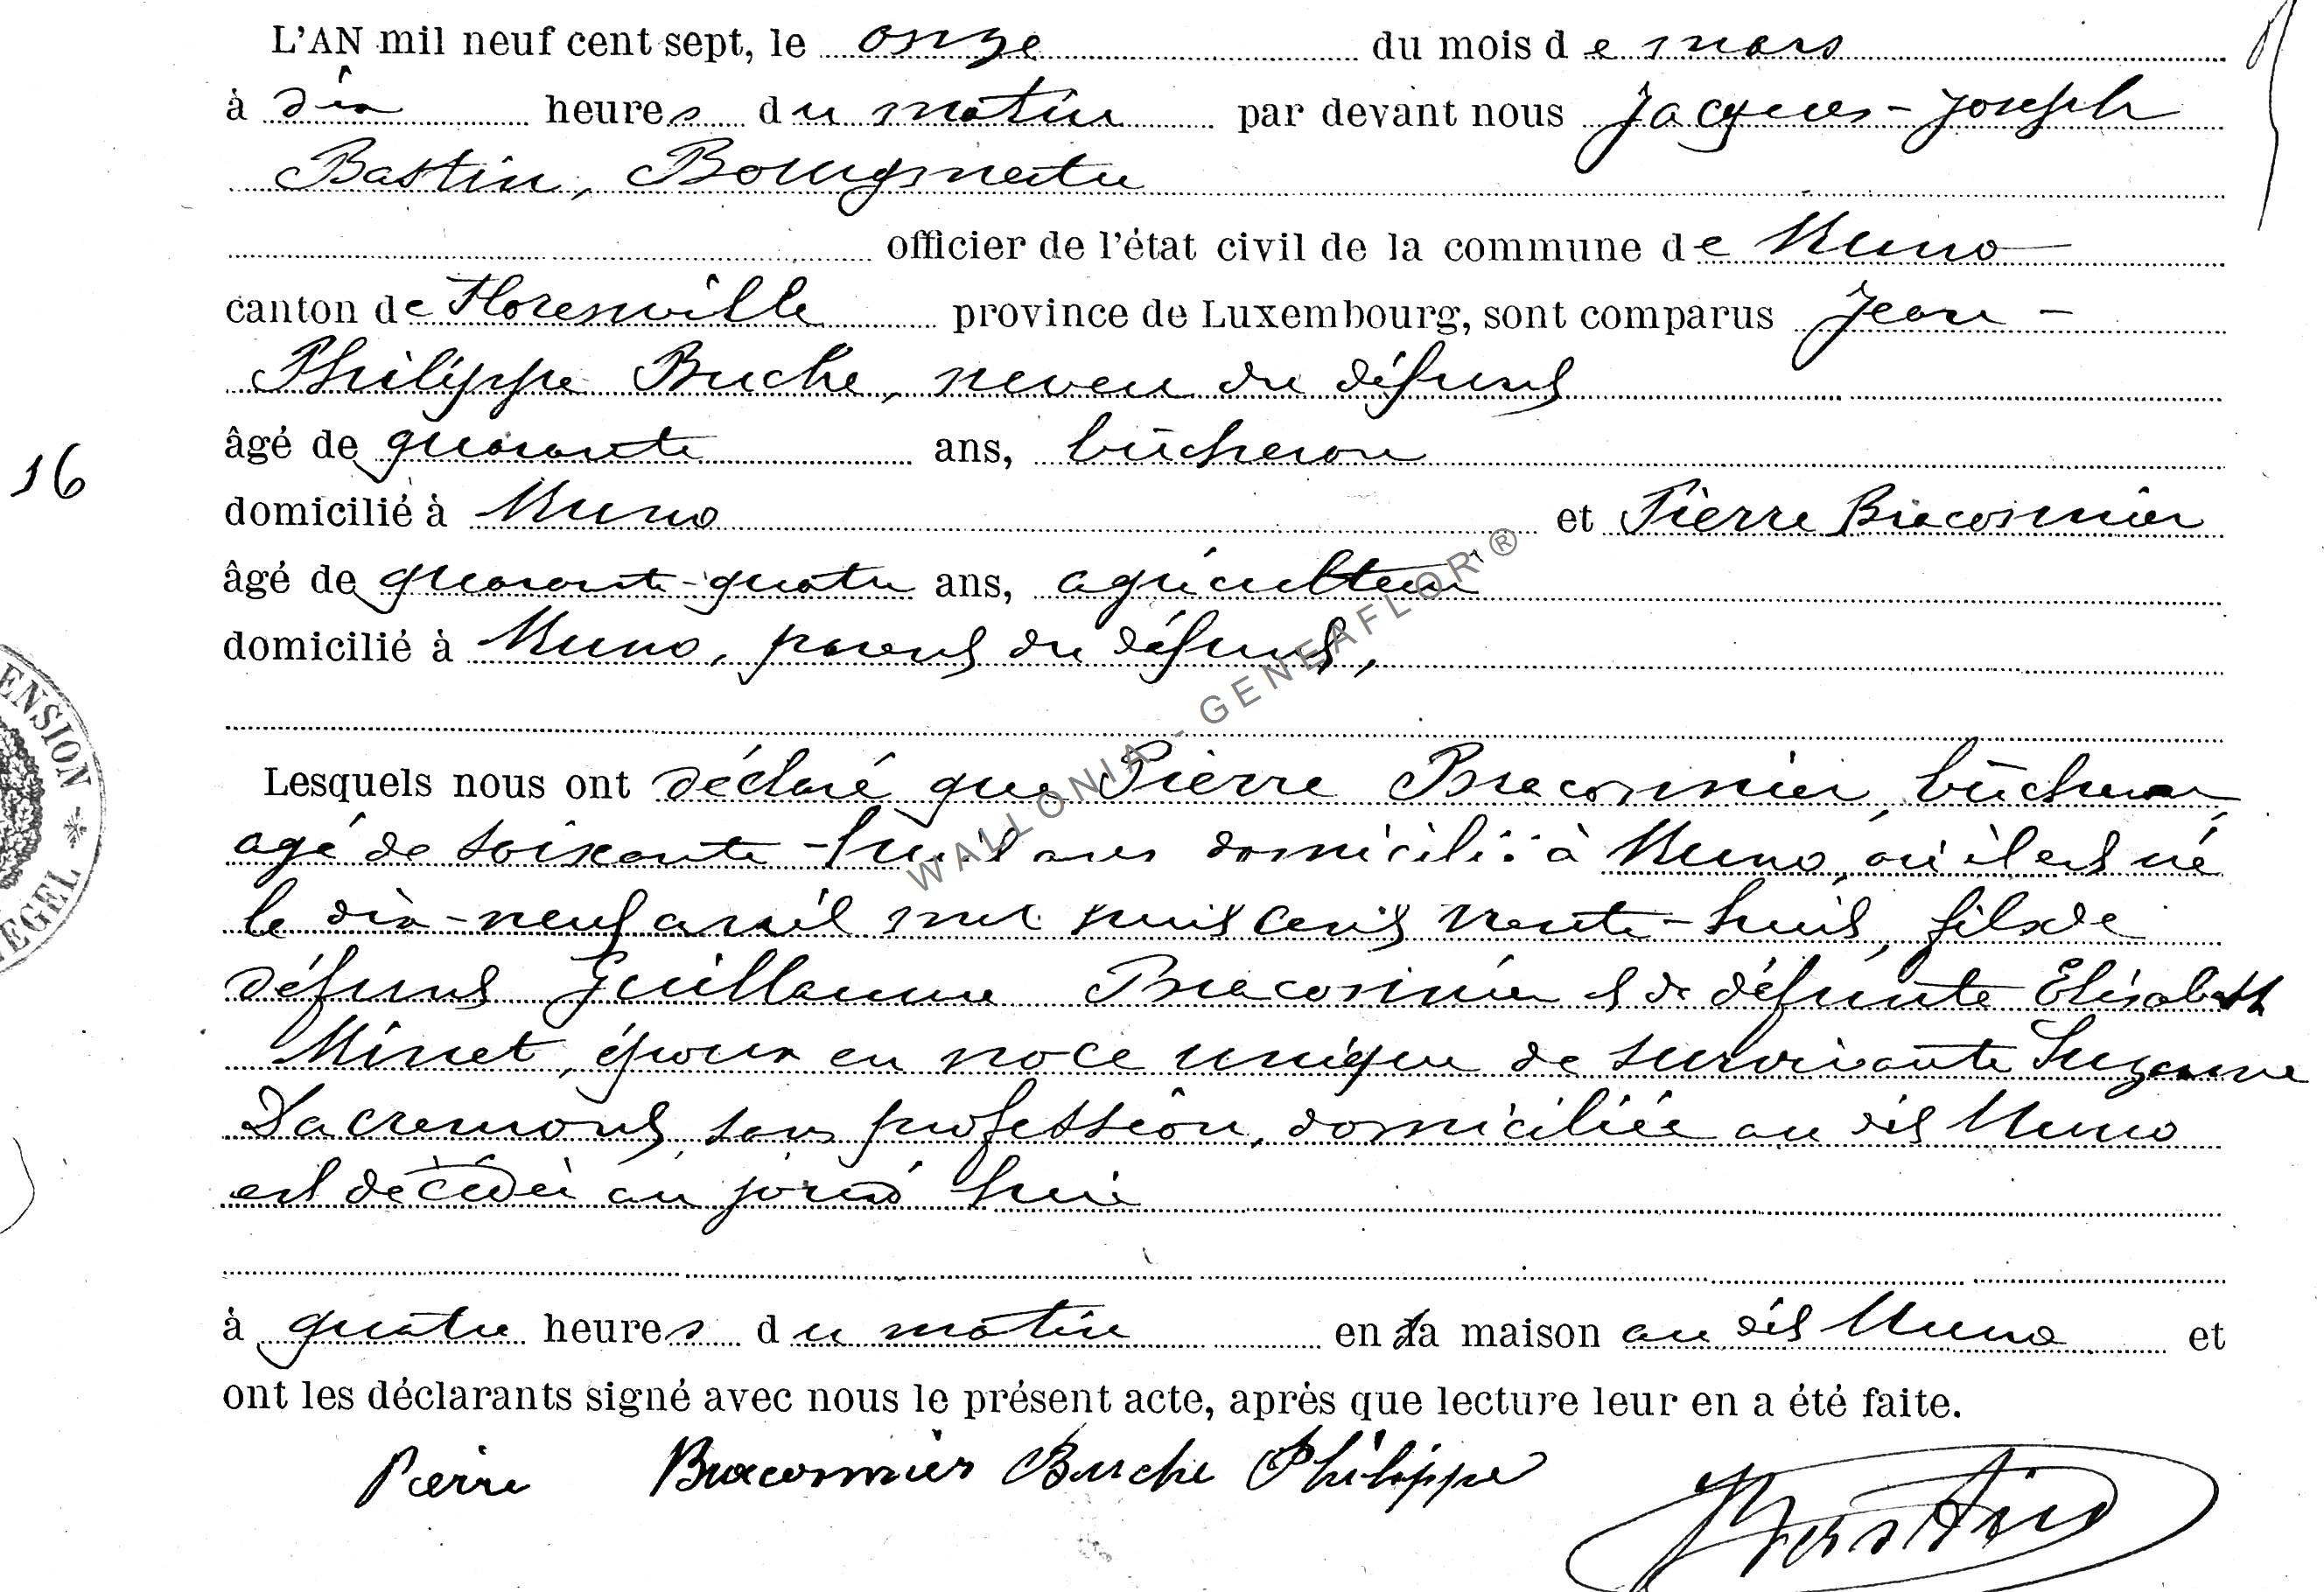 L'AN mil neuf cent sept, le onze du mois de mars
à dix heures du matin par devant nous Jacques-Joseph
Bastin, Bourgmestre
officier de l'état civil de la commune de Muno
canton de Florenville province de Luxembourg, sont comparus Jean-
Philippe Buche, neveu du défunt
âgé de quarante ans, bûcheron
16
domicilié à Muno et Pierre Braconnier
âgé de quarante-quatre ans, agriculteur
domicilié à Muno, parent du défunt,
ENSION * EGEL
WALLONIA - GENEAFLOR ®
Lesquels nous ont déclaré que Pierre Braconnier, bûcheron,
agé de soixante-huit ans domicilié à Muno, où il est né
le dix-neuf avril mil huit cent trente-huit, fils de
défunt Guillaume Braconnier et de défunte Elisabeth
Minet, époux en noce unique de survivante Suzanne
Lacremont, sans profession, domiciliée au dit Muno
est décédé au jourd'hui
à quatre heures du matin en sa maison au dit Muno et
ont les déclarants signé avec nous le présent acte, après que lecture leur en a été faite.
Pierre Braconnier Buche Philippe
JBastin